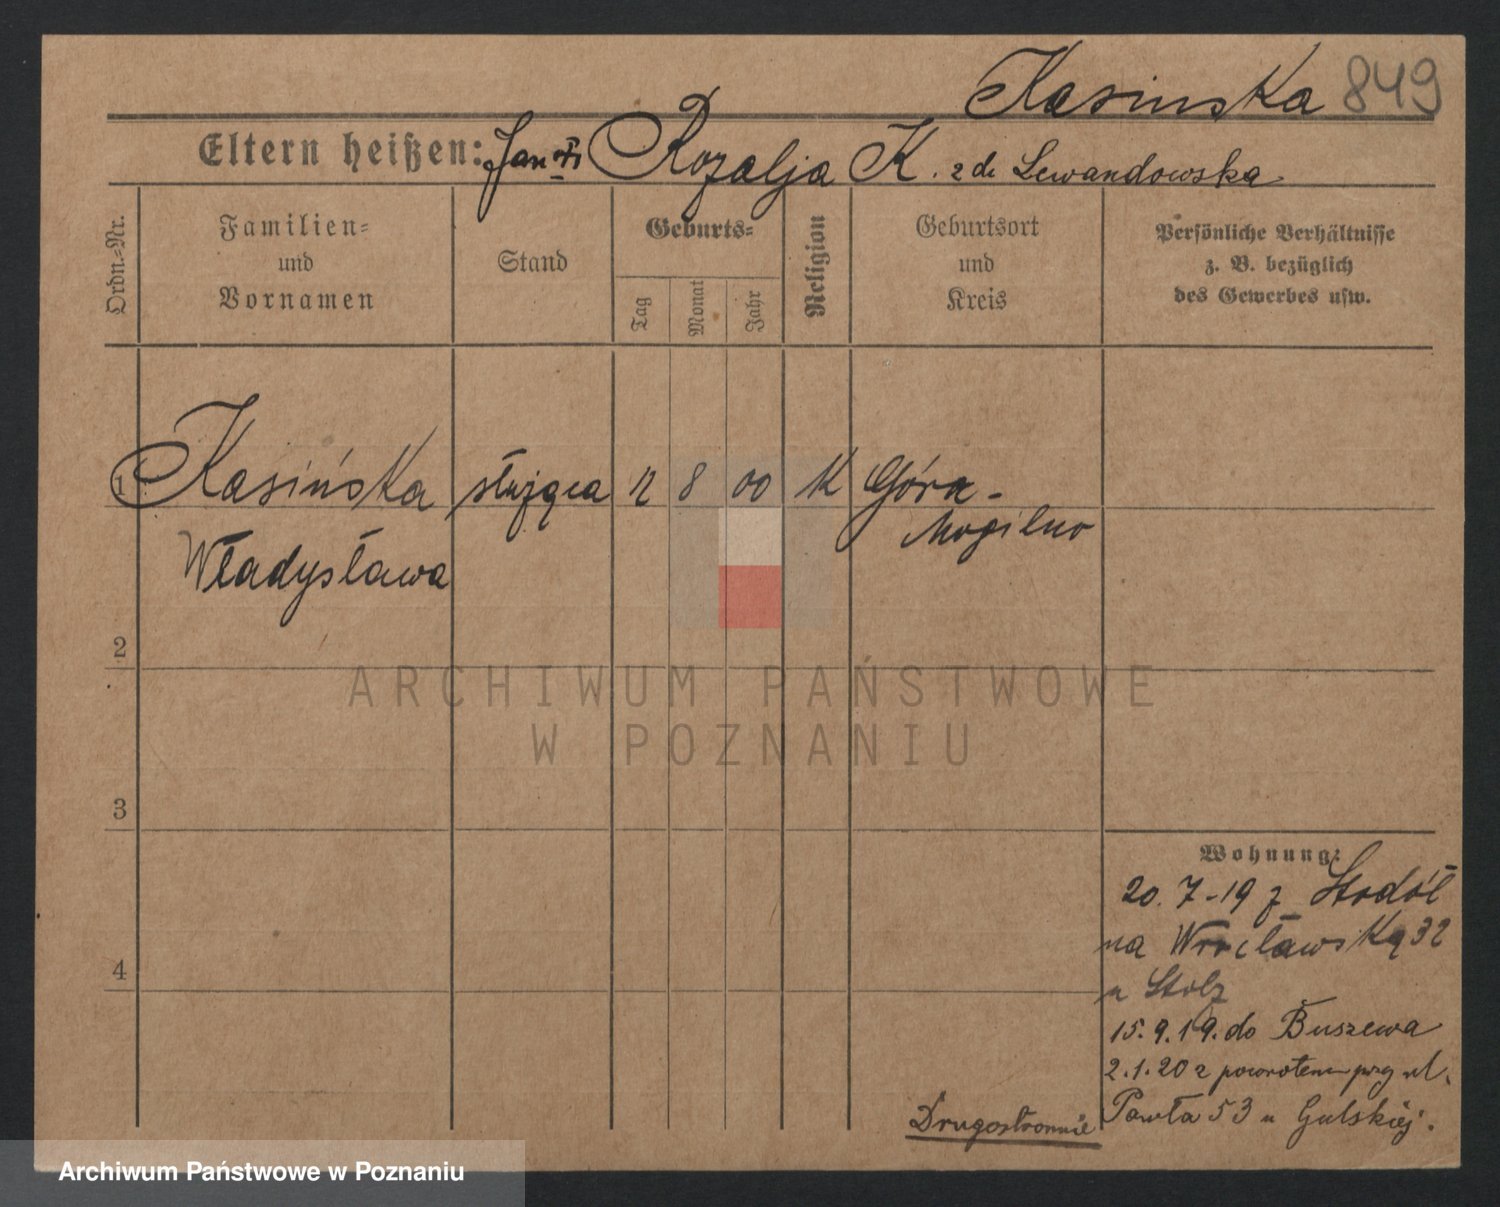 Kasinska 849
Eltern heißen: Jan i Rozalja K. z d. Lewandowska
Ordn.-Nr.
Familien-
und
Vornamen
Stand
Geburts-
Tag
Monat
Jahr
Religion
Geburtsort
und
Kreis
Persönliche Verhältnisse
z. B. bezüglich
des Gewerbes usw.
1 Kasińska służąca 12 8 00 K Góra -
Mogilno
Władysława
2
ARCHIWUM PAŃSTWOWE
W POZNANIU
3
Wohnung:
20.7-19 z Stodół
na Wrocławską 32
4
u Stolz
15.9.19. do Buszewa
2.1.20 z powrotem przy ul.
Pawła 53 u Gulskiej.
Drugostronnie
Archiwum Państwowe w Poznaniu